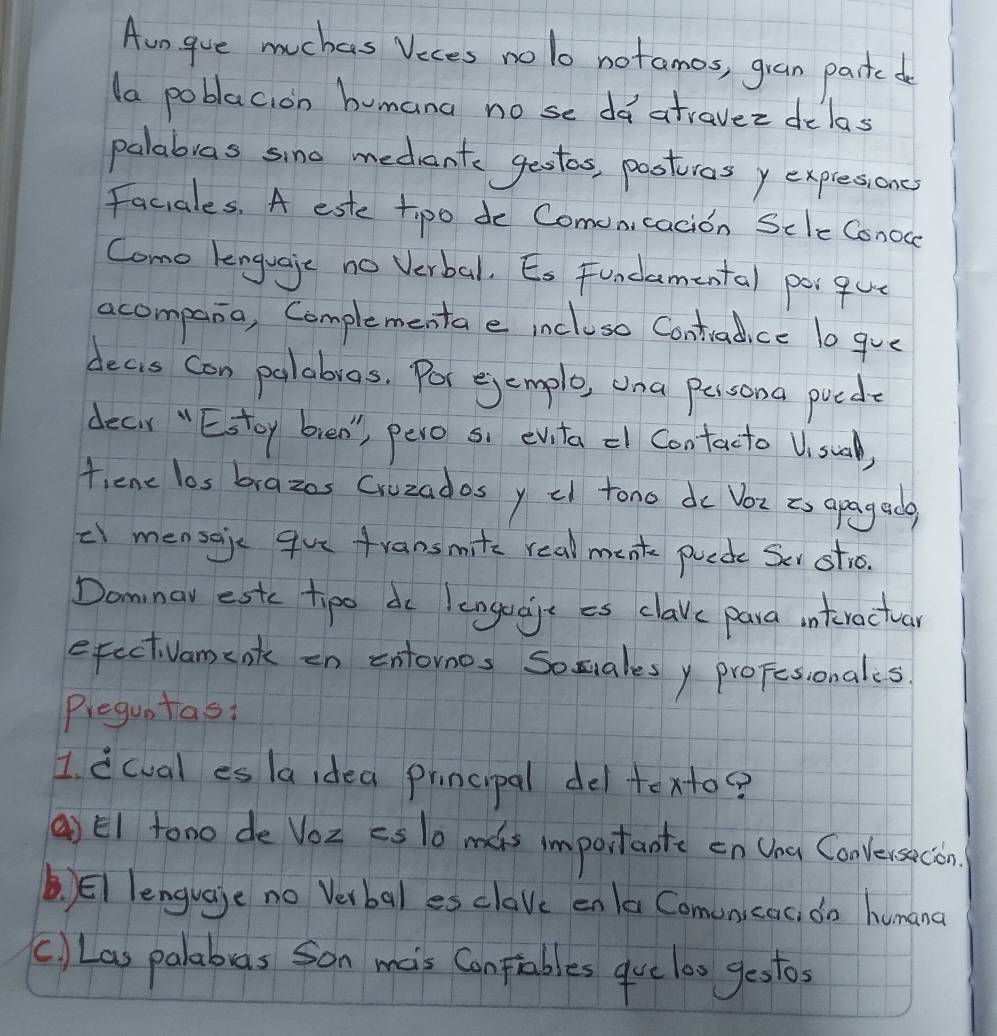 Aunque muchas Veces no lo notamos, gran parte de
la población humana no se dá atravez delas
palabras sino mediante gestos, posturas y expresiones
Faciales. A este tipo de Comunicación Sele Conoce
Como lenguaje no Verbal. Es Fundamental por que
acompaña, Complementa e incluso Contradice lo que
decis Con palabras. Por ejemplo, una persona puede
decir "Estoy bien", pero si evita el Contacto Visual,
tiene los brazos Cruzados y el tono de Voz es apagado,
el mensaje que transmite realmente puede Ser otro.
Dominar este tipo de lenguaje es clave para interactuar
efectivamente en entornos Sociales y profesionales.
Preguntas:
1. ¿cual es la idea principal del texto?
a) El tono de Voz es lo más importante en Una Conversación.
b.) El lenguaje no Verbal es clave en la Comunicación humana
c.) Las palabras Son más Confiables que los gestos